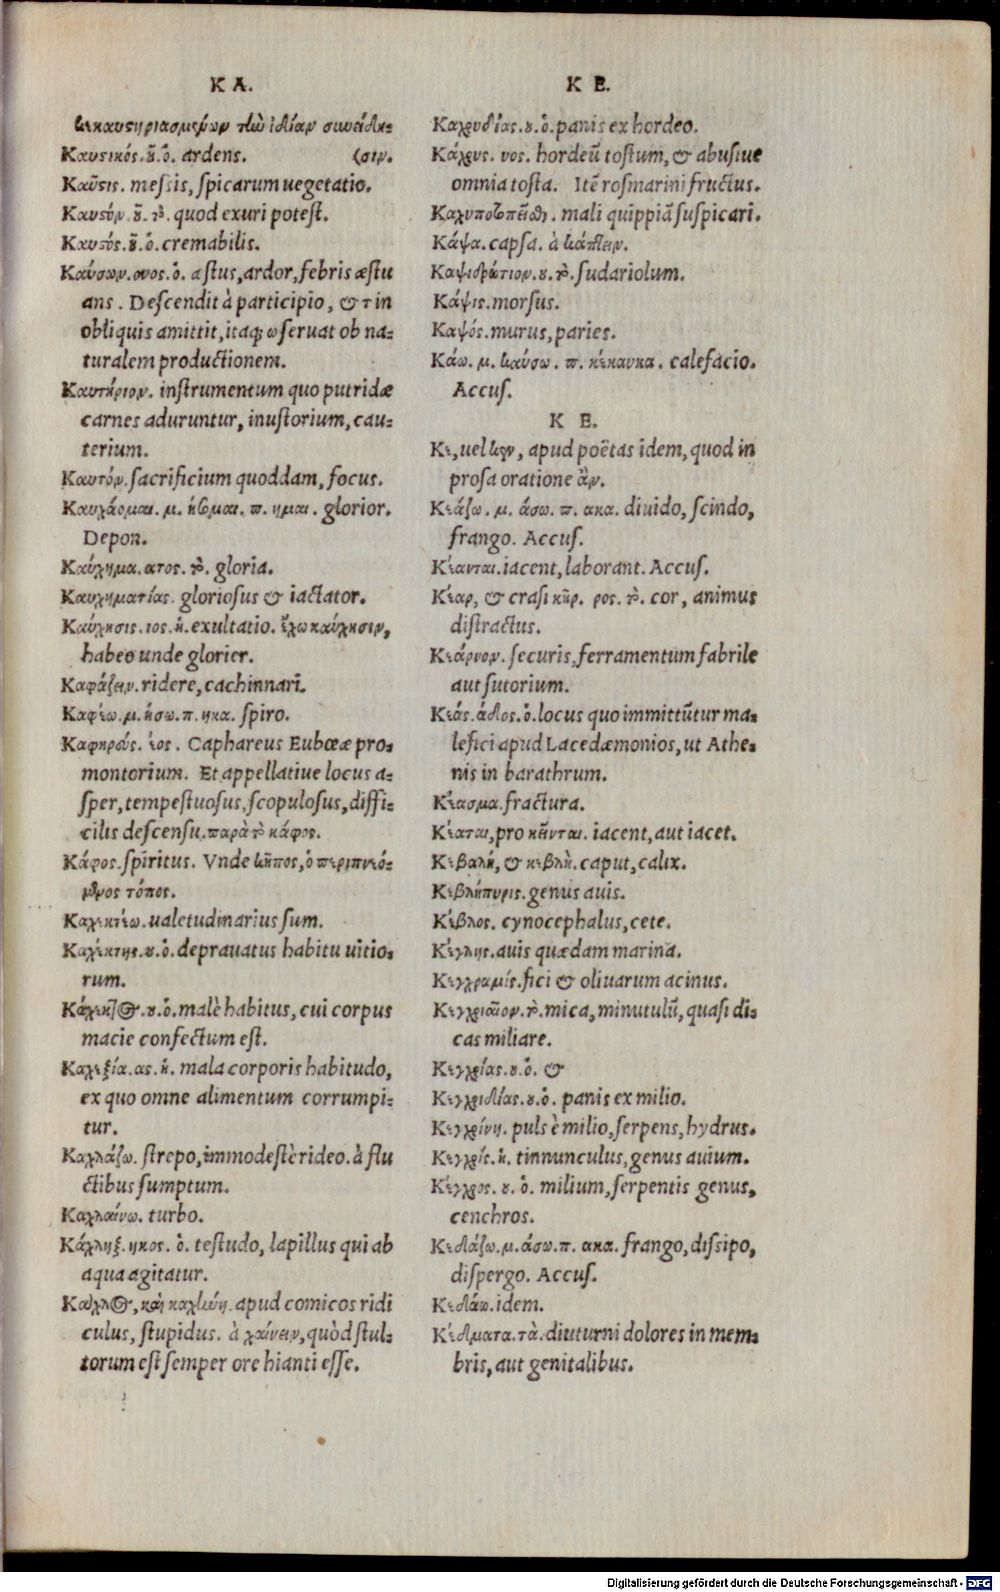 K A.
κεκαυστηριασμένων τὴν ἰδίαν συνείδη-
Καυστικός. οῦ. ὁ. ardens. (σιν.
Καῦσις. messis, spicarum uegetatio.
Καυστόν. οῦ. τὸ. quod exuri potest.
Καυστός. οῦ. ὁ. cremabilis.
Καύσων. ωνος. ὁ. æstus, ardor, febris æstu
ans. Descendit à participio, & τ in
obliquis amittit, itaq; ω seruat ob na-
turalem productionem.
Καυτήριον. instrumentum quo putridæ
carnes aduruntur, inustorium, cau-
terium.
Καυτόν. sacrificium quoddam, focus.
Καυχάομαι. μ. ήσομαι. π. ημαι. glorior.
Depon.
Καύχημα. ατος. τὸ. gloria.
Καυχηματίας. gloriosus & iactator.
Καύχησις. ιος. ἡ. exultatio. ἔχω καύχησιν,
habeo unde glorier.
Καφάζειν. ridere, cachinnari.
Καφέω. μ. ήσω. π. ηκα. spiro.
Καφηρεύς. έος. Caphareus Eubœæ pro-
montorium. Et appellatiue locus a-
sper, tempestuosus, scopulosus, diffi-
cilis descensu. παρὰ τὸ κάφος.
Κάφος. spiritus. Vnde κῆπος, ὁ περιπνεό-
μενος τόπος.
Καχεκτέω. ualetudinarius sum.
Καχέκτης. ου. ὁ. deprauatus habitu uitio-
rum.
Κάχεκτος. ου. ὁ. malè habitus, cui corpus
macie confectum est.
Καχεξία. ας. ἡ. mala corporis habitudo,
ex quo omne alimentum corrumpi-
tur.
Καχλάζω. strepo, immodestè rideo. à flu
ctibus sumptum.
Καχλαίνω. turbo.
Κάχληξ. ηκος. ὁ. testudo, lapillus qui ab
aqua agitatur.
apud comicos ridi
culus, stupidus. à χαίνειν, quòd stul-
torum est semper ore hianti esse.
K E.
Καχρυδίας. ου. ὁ. panis ex hordeo.
Κάχρυς. υος. hordeū tostum, & abusiue
omnia tosta. Itē rosmarini fructus.
Καχυποτοπεῖσθαι. mali quippiā suspicari.
Κάψα. capsa. à κάπτειν.
Καψιδρώτιον. ου. τὸ. sudariolum.
Κάψις. morsus.
Καψός. murus, paries.
Κάω. μ. καύσω. π. κέκαυκα. calefacio.
Accus.
K E.
Κε, uel κεν, apud poëtas idem, quod in
prosa oratione ἄν.
Κεάζω. μ. άσω. π. ακα. diuido, scindo,
frango. Accus.
Κέανται. iacent, laborant. Accus.
Κέαρ, & crasi κῆρ. ρος. τὸ. cor, animus
distractus.
Κεάρνον. securis, ferramentum fabrile
aut sutorium.
Κεάς. άδος. ὁ. locus quo immittūtur ma-
lefici apud Lacedæmonios, ut Athe-
nis in barathrum.
Κέασμα. fractura.
Κέαται, pro κεῖνται. iacent, aut iacet.
Κεβαλή, & κεβλὴ. caput, calix.
Κεβλήπυρις. genus auis.
Κέβλος. cynocephalus, cete.
Κέγλης. auis quædam marina.
Κεγχραμίς. fici & oliuarum acinus.
Κεγχριαῖον. τὸ. mica, minutulū, quasi di-
cas miliare.
Κεγχρίας. ου. ὁ. &
Κεγχριδίας. ου. ὁ. panis ex milio.
Κεγχρίνη. puls è milio, serpens, hydrus.
Κεγχρίς. ἡ. tinnunculus, genus auium.
Κέγχρος. ου. ὁ. milium, serpentis genus,
cenchros.
Κεδάζω. μ. άσω. π. ακα. frango, dissipo,
dispergo. Accus.
Κεδάω. idem.
Κέδματα. τὰ. diuturni dolores in mem-
bris, aut genitalibus.
Digitalisierung gefördert durch die Deutsche Forschungsgemeinschaft - DFG